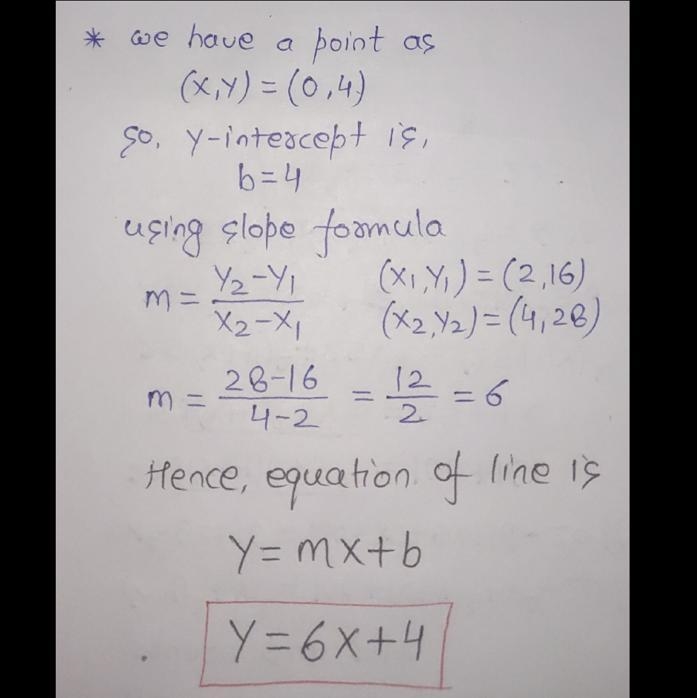 * we have a point as
(x,y) = (0,4)
so, y-intercept is,
b=4
using slope formula
m = (y₂-y₁)/(x₂-x₁) (x₁,y₁) = (2,16)
(x₂,y₂) = (4,28)
m = (28-16)/(4-2) = 12/2 = 6
Hence, equation of line is
y = mx+b
y = 6x+4